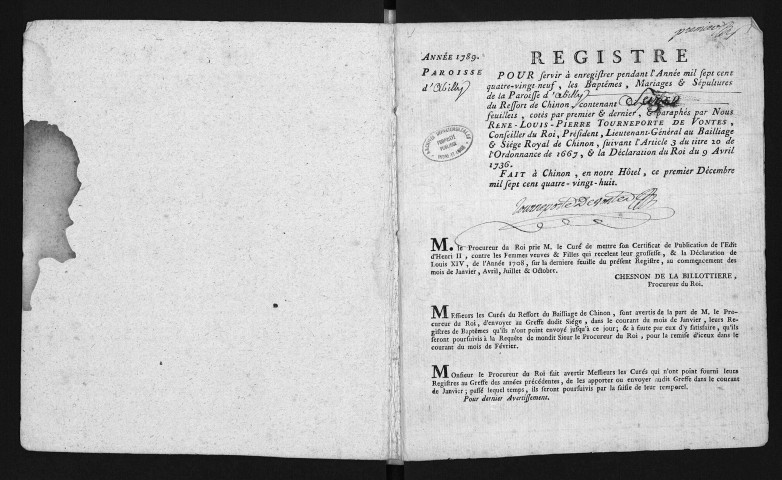 premier
ANNÉE 1789.
PAROISSE
d'Abilly
REGISTRE
POUR servir à enregistrer pendant l'Année mil sept cent
quatre-vingt neuf, les Baptêmes, Mariages & Sépultures
de la Paroisse d'Abilly
du Ressort de Chinon, contenant
feuillets, cotés par premier & dernier, & paraphés par Nous
RENE-LOUIS-PIERRE TOURNEPORTE DE VONTES,
Conseiller du Roi, Président, Lieutenant-Général au Bailliage
& Siége Royal de Chinon, suivant l'Article 3 du titre 20 de
l'Ordonnance de 1667, & la Déclaration du Roi du 9 Avril
1736.
FAIT à Chinon, en notre Hôtel, ce premier Décembre
mil sept cent quatre-vingt-huit.
ARCHIVES DÉPARTEMENTALES
PROPRIÉTÉ
PUBLIQUE
INDRE ET LOIRE
Tourneporte Devontes
M. le Procureur du Roi prie M. le Curé de mettre son Certificat de Publication de l'Edit
d'Henri II, contre les Femmes veuves & Filles qui recelent leur grossesse, & la Déclaration de
Louis XIV, de l'Année 1708, sur la derniere feuille du présent Registre, au commencement des
mois de Janvier, Avril, Juillet & Octobre.
CHESNON DE LA BILLOTTIERE,
Procureur du Roi.
Messieurs les Curés du Ressort du Bailliage de Chinon, sont avertis de la part de M. le Pro-
cureur du Roi, d'envoyer au Greffe dudit Siége, dans le courant du mois de Janvier, leurs Re-
gistres de Baptêmes qu'ils n'ont point envoyé jusqu'à ce jour; & à faute par eux d'y satisfaire, qu'ils
seront poursuivis à la Requête de mondit Sieur le Procureur du Roi, pour la remise d'iceux dans le
courant du mois de Février.
Monsieur le Procureur du Roi fait avertir Messieurs les Curés qui n'ont point fourni leurs
Registres au Greffe des années précédentes, de les apporter ou envoyer audit Greffe dans le courant
de Janvier; passé lequel temps, ils seront poursuivis par la saisie de leur temporel.
Pour dernier Avertissement.